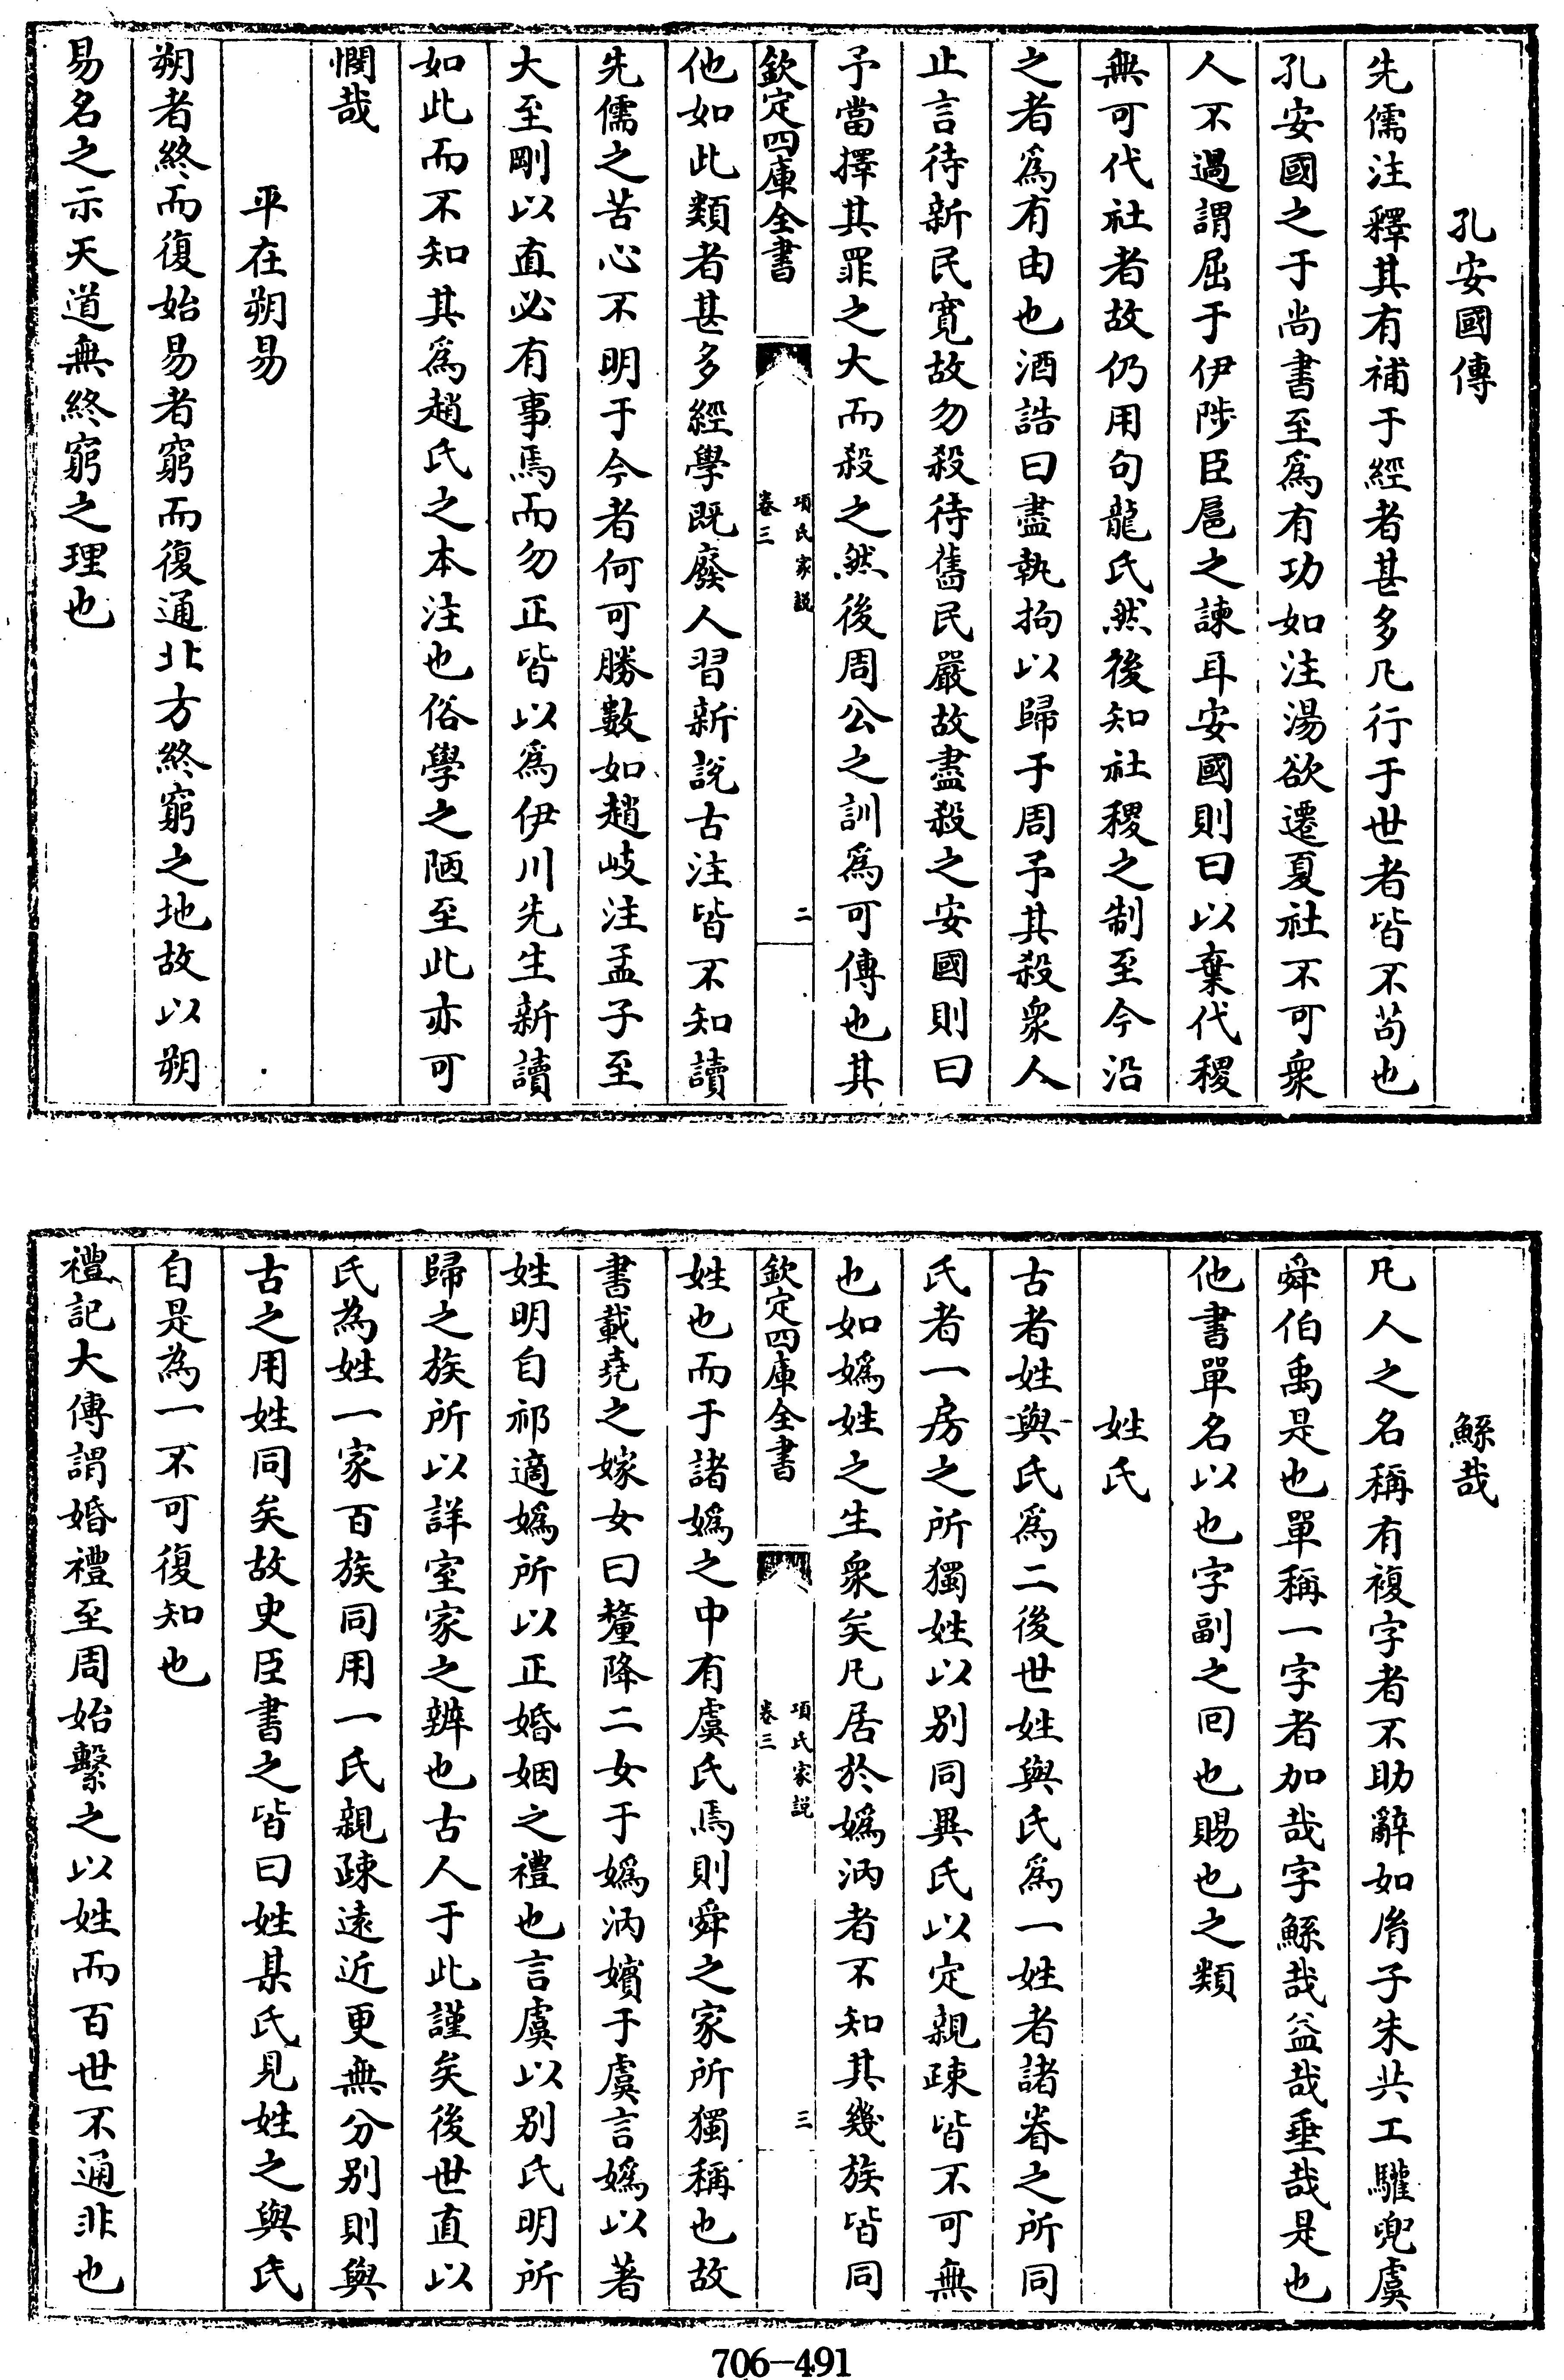 孔安國傳
先儒注釋其有補于經者甚多凡行于世者皆不苟也
孔安國之于尚書至爲有功如注湯欲遷夏社不可衆
人不過謂屈于伊陟臣扈之諫耳安國則曰以棄代稷
無可代社者故仍用句龍氏然後知社稷之制至今沿
之者爲有由也酒誥曰盡執拘以歸于周予其殺衆人
止言待新民寛故勿殺待舊民嚴故盡殺之安國則曰
予當擇其罪之大而殺之然後周公之訓爲可傳也其
欽定四庫全書
項氏家説
卷三
二
他如此類者甚多經學既廢人習新說古注皆不知讀
先儒之苦心不明于今者何可勝數如趙岐注孟子至
大至剛以直必有事焉而勿正皆以爲伊川先生新讀
如此而不知其爲趙氏之本注也俗學之陋至此亦可
憫哉
平在朔易
朔者終而復始易者窮而復通北方終窮之地故以朔
易名之示天道無終窮之理也
鯀哉
凡人之名稱有複字者不助辭如胤子朱共工驩兜虞
舜伯禹是也單稱一字者加哉字鯀哉益哉垂哉是也
他書單名以也字副之回也賜也之類
姓氏
古者姓與氏爲二後世姓與氏爲一姓者諸眷之所同
氏者一房之所獨姓以别同異氏以定親疎皆不可無
也如嬀姓之生衆矣凡居於嬀汭者不知其幾族皆同
欽定四庫全書
項氏家説
卷三
三
姓也而于諸嬀之中有虞氏焉則舜之家所獨稱也故
書載堯之嫁女曰釐降二女于嬀汭嬪于虞言嬀以著
姓明自祁適嬀所以正婚姻之禮也言虞以别氏明所
歸之族所以詳室家之辨也古人于此謹矣後世直以
氏為姓一家百族同用一氏親疎遠近更無分别則與
古之用姓同矣故史臣書之皆曰姓某氏見姓之與氏
自是為一不可復知也
禮記大傳謂婚禮至周始繫之以姓而百世不通非也
706-491